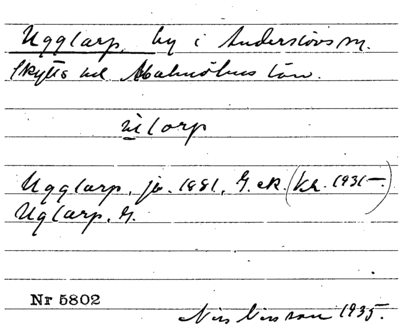 Ugglarp, by i Anderslövs sn.
Skytts hd Malmöhus län.
Ugglarp, jb. 1881, G. ek. (kr. 1931–)
Uglarp, G.
Nr 5802
Nils Nilsson 1935.